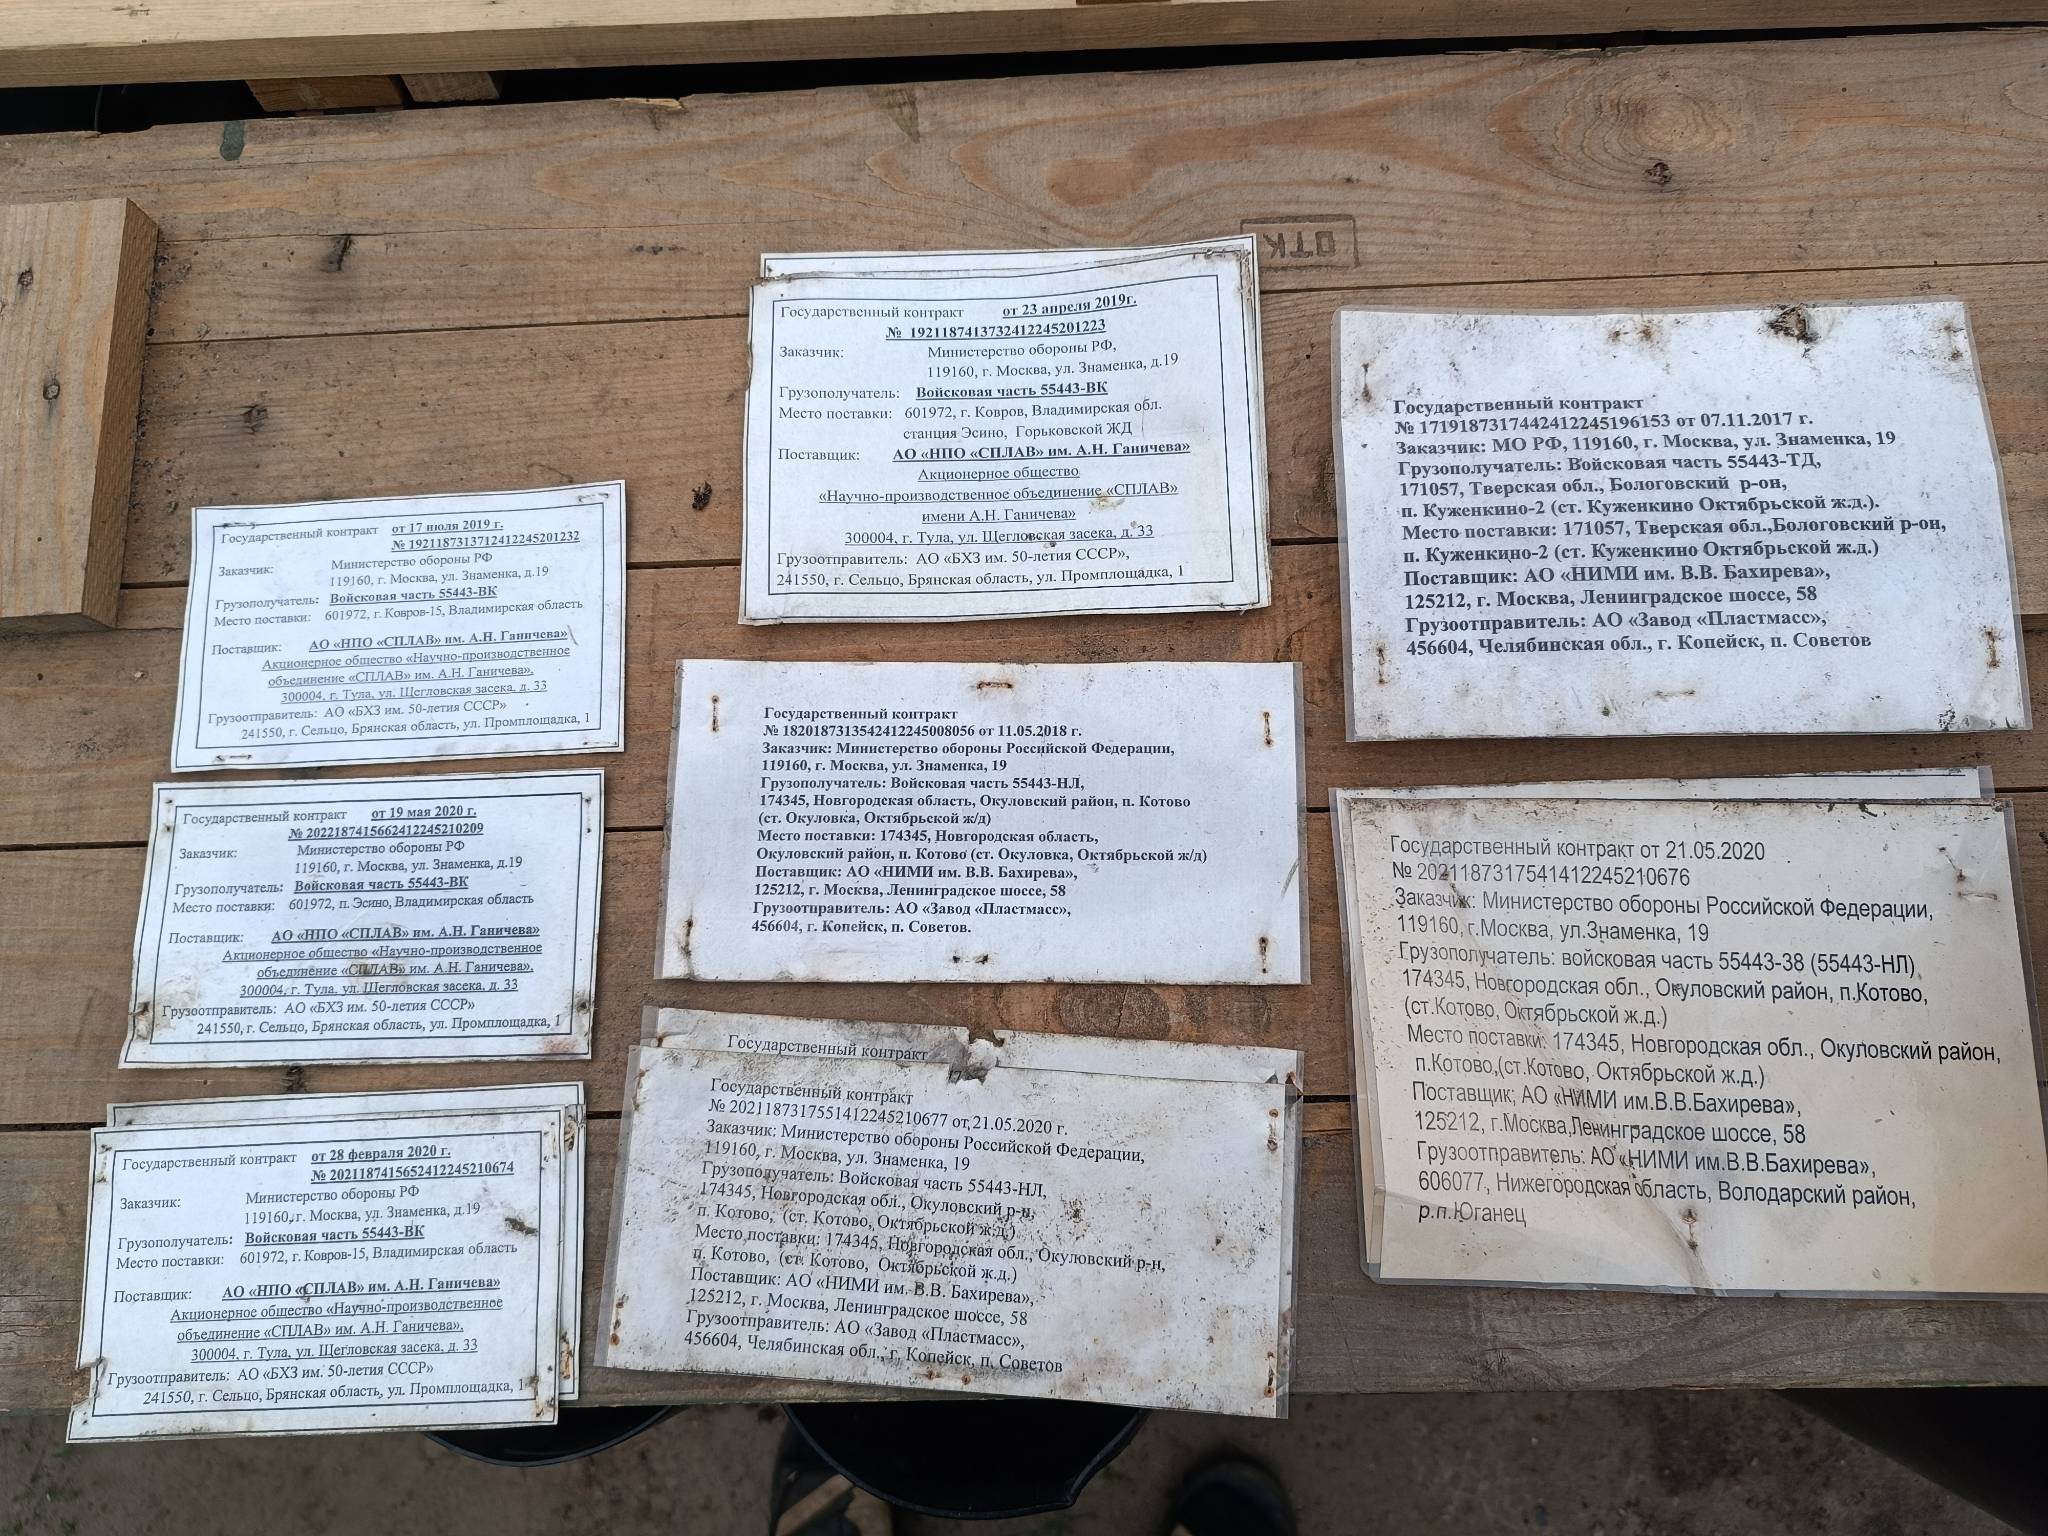 ОТК
Государственный контракт от 17 июля 2019 г.
№ 1921187313712412245201232
Заказчик: Министерство обороны РФ
119160, г. Москва, ул. Знаменка, д.19
Грузополучатель: Войсковая часть 55443-ВК
Место поставки: 601972, г. Ковров-15, Владимирская область
Поставщик: АО «НПО «СПЛАВ» им. А.Н. Ганичева»
Акционерное общество «Научно-производственное
объединение «СПЛАВ» им. А.Н. Ганичева»,
300004, г. Тула, ул. Щегловская засека, д. 33
Грузоотправитель: АО «БХЗ им. 50-летия СССР»
241550, г. Сельцо, Брянская область, ул. Промплощадка, 1
Государственный контракт от 19 мая 2020 г.
№ 2022187415662412245210209
Заказчик: Министерство обороны РФ
119160, г. Москва, ул. Знаменка, д.19
Грузополучатель: Войсковая часть 55443-ВК
Место поставки: 601972, п. Эсино, Владимирская область
Поставщик: АО «НПО «СПЛАВ» им. А.Н. Ганичева»
Акционерное общество «Научно-производственное
объединение «СПЛАВ» им. А.Н. Ганичева»,
300004, г. Тула, ул. Щегловская засека, д. 33
Грузоотправитель: АО «БХЗ им. 50-летия СССР»
241550, г. Сельцо, Брянская область, ул. Промплощадка, 1
Государственный контракт от 28 февраля 2020 г.
№ 2021187415652412245210674
Заказчик: Министерство обороны РФ
119160, г. Москва, ул. Знаменка, д.19
Грузополучатель: Войсковая часть 55443-ВК
Место поставки: 601972, г. Ковров-15, Владимирская область
Поставщик: АО «НПО «СПЛАВ» им. А.Н. Ганичева»
Акционерное общество «Научно-производственное
объединение «СПЛАВ» им. А.Н. Ганичева»,
300004, г. Тула, ул. Щегловская засека, д. 33
Грузоотправитель: АО «БХЗ им. 50-летия СССР»
241550, г. Сельцо, Брянская область, ул. Промплощадка, 1
Государственный контракт от 23 апреля 2019г.
№ 1921187413732412245201223
Заказчик: Министерство обороны РФ,
119160, г. Москва, ул. Знаменка, д.19
Грузополучатель: Войсковая часть 55443-ВК
Место поставки: 601972, г. Ковров, Владимирская обл.
станция Эсино, Горьковской ЖД
Поставщик: АО «НПО «СПЛАВ» им. А.Н. Ганичева»
Акционерное общество
«Научно-производственное объединение «СПЛАВ»
имени А.Н. Ганичева»
300004, г. Тула, ул. Щегловская засека, д. 33
Грузоотправитель: АО «БХЗ им. 50-летия СССР»,
241550, г. Сельцо, Брянская область, ул. Промплощадка, 1
Государственный контракт
№ 1820187313542412245008056 от 11.05.2018 г.
Заказчик: Министерство обороны Российской Федерации,
119160, г. Москва, ул. Знаменка, 19
Грузополучатель: Войсковая часть 55443-НЛ,
174345, Новгородская область, Окуловский район, п. Котово
(ст. Окуловка, Октябрьской ж/д)
Место поставки: 174345, Новгородская область,
Окуловский район, п. Котово (ст. Окуловка, Октябрьской ж/д)
Поставщик: АО «НИМИ им. В.В. Бахирева»,
125212, г. Москва, Ленинградское шоссе, 58
Грузоотправитель: АО «Завод «Пластмасс»,
456604, г. Копейск, п. Советов.
Государственный контракт
Государственный контракт
№ 2021187317551412245210677 от 21.05.2020 г.
Заказчик: Министерство обороны Российской Федерации,
119160, г. Москва, ул. Знаменка, 19
Грузополучатель: Войсковая часть 55443-НЛ,
174345, Новгородская обл., Окуловский р-н,
п. Котово, (ст. Котово, Октябрьской ж.д.)
Место поставки: 174345, Новгородская обл., Окуловский р-н,
п. Котово, (ст. Котово, Октябрьской ж.д.)
Поставщик: АО «НИМИ им. В.В. Бахирева»,
125212, г. Москва, Ленинградское шоссе, 58
Грузоотправитель: АО «Завод «Пластмасс»,
456604, Челябинская обл., г. Копейск, п. Советов
Государственный контракт
№ 1719187317442412245196153 от 07.11.2017 г.
Заказчик: МО РФ, 119160, г. Москва, ул. Знаменка, 19
Грузополучатель: Войсковая часть 55443-ТД,
171057, Тверская обл., Бологовский р-он,
п. Куженкино-2 (ст. Куженкино Октябрьской ж.д.).
Место поставки: 171057, Тверская обл.,Бологовский р-он,
п. Куженкино-2 (ст. Куженкино Октябрьской ж.д.)
Поставщик: АО «НИМИ им. В.В. Бахирева»,
125212, г. Москва, Ленинградское шоссе, 58
Грузоотправитель: АО «Завод «Пластмасс»,
456604, Челябинская обл., г. Копейск, п. Советов
Государственный контракт от 21.05.2020
№ 2021187317541412245210676
Заказчик: Министерство обороны Российской Федерации,
119160, г.Москва, ул.Знаменка, 19
Грузополучатель: войсковая часть 55443-38 (55443-НЛ)
174345, Новгородская обл., Окуловский район, п.Котово,
(ст.Котово, Октябрьской ж.д.)
Место поставки: 174345, Новгородская обл., Окуловский район,
п.Котово,(ст.Котово, Октябрьской ж.д.)
Поставщик; АО «НИМИ им.В.В.Бахирева»,
125212, г.Москва,Ленинградское шоссе, 58
Грузоотправитель: АО «НИМИ им.В.В.Бахирева»,
606077, Нижегородская область, Володарский район,
р.п.Юганец